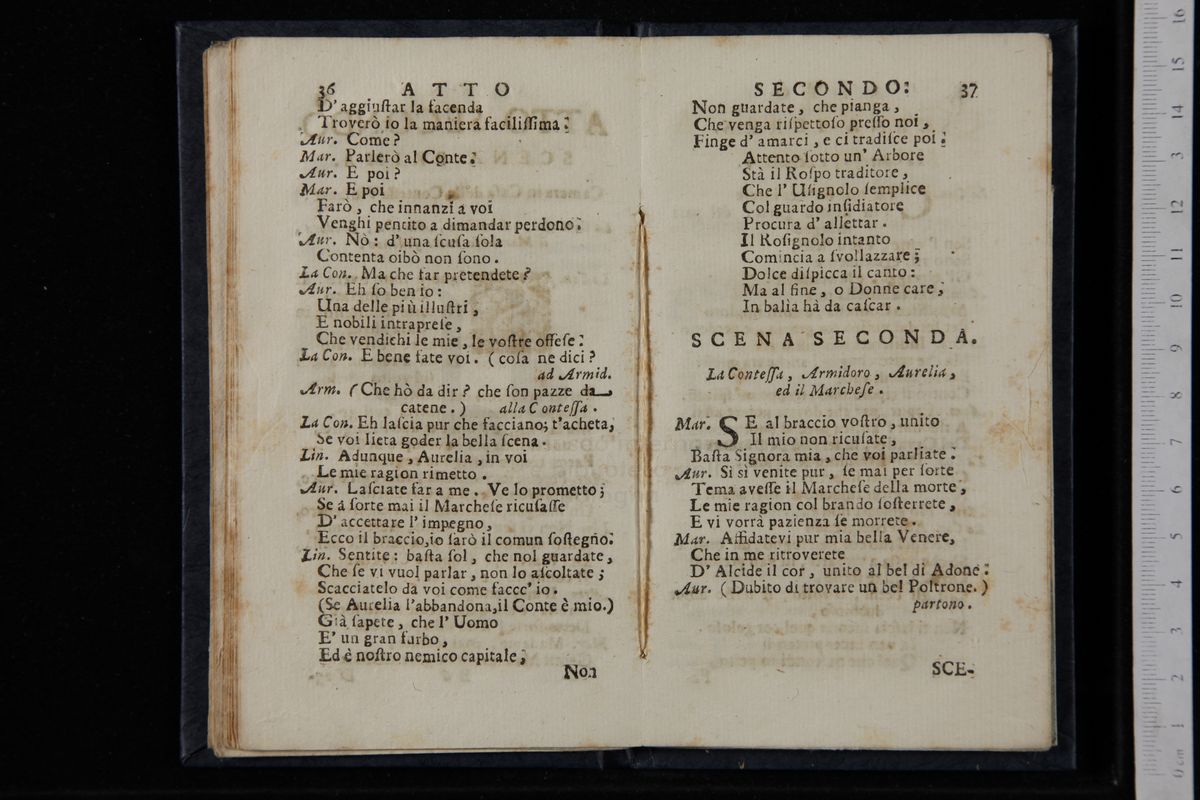 36 ATTO
D' aggiuſtar la facenda
Troverò io la maniera faciliſſima.
Aur. Come?
Mar. Parlerò al Conte.
Aur. E poi?
Mar. E poi
Farò, che innanzi a voi
Venghi pentito a dimandar perdono.
Aur. Nò: d'una ſcuſa ſola
Contenta oibò non ſono.
La Con. Ma che far pretendete?
Aur. Eh ſo ben io:
Una delle più illuſtri,
E nobili intrapreſe,
Che vendichi le mie, le voſtre offeſe.
La Con. E bene fate voi. (coſa ne dici?
ad Armid.
Arm. (Che hò da dir? che ſon pazze da
catene.) alla Conteſſa.
La Con. Eh laſcia pur che facciano; t'acheta,
Se voi lieta goder la bella ſcena.
Lin. Adunque, Aurelia, in voi
Le mie ragion rimetto.
Aur. Laſciate far a me. Ve lo prometto;
Se a ſorte mai il Marcheſe ricuſaſſe
D' accettare l' impegno,
Ecco il braccio,io ſarò il comun ſoſtegno.
Lin. Sentite: baſta ſol, che nol guardate,
Che ſe vi vuol parlar, non lo aſcoltate;
Scacciatelo da voi come faccc' io.
(Se Aurelia l'abbandona,il Conte è mio.)
Già ſapete, che l' Uomo
E' un gran furbo,
Ed è noſtro nemico capitale;
SECONDO. 37
Non guardate, che pianga,
Che venga riſpettoſo preſſo noi,
Finge d' amarci, e ci tradiſce poi.
Attento ſotto un' Arbore
Stà il Roſpo traditore,
Che l' Uſignolo ſemplice
Col guardo inſidiatore
Procura d' allettar.
Il Roſignolo intanto
Comincia a ſvollazzare;
Dolce diſpicca il canto:
Ma al fine, o Donne care,
In balìa hà da caſcar.
SCENA SECONDA.
La Conteſſa, Armidoro, Aurelia,
ed il Marcheſe.
Mar. SE al braccio voſtro, unito
Il mio non ricuſate,
Baſta Signora mia, che voi parliate.
Aur. Sì sì venite pur, ſe mai per ſorte
Tema aveſſe il Marcheſe della morte,
Le mie ragion col brando ſoſterrete,
E vi vorrà pazienza ſe morrete.
Mar. Affidatevi pur mia bella Venere,
Che in me ritroverete
D' Alcide il cor, unito al bel di Adone.
Aur. (Dubito di trovare un bel Poltrone.)
partono.
SCE-